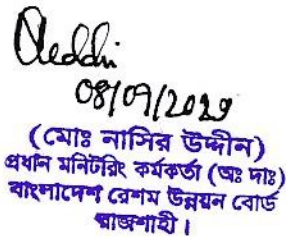 08/09/2029
(মোঃ নাসির উদ্দীন)
প্রধান মনিটরিং কর্মকর্তা (অঃ দাঃ)
বাংলাদেশ রেশম উন্নয়ন বোর্ড
রাজশাহী।